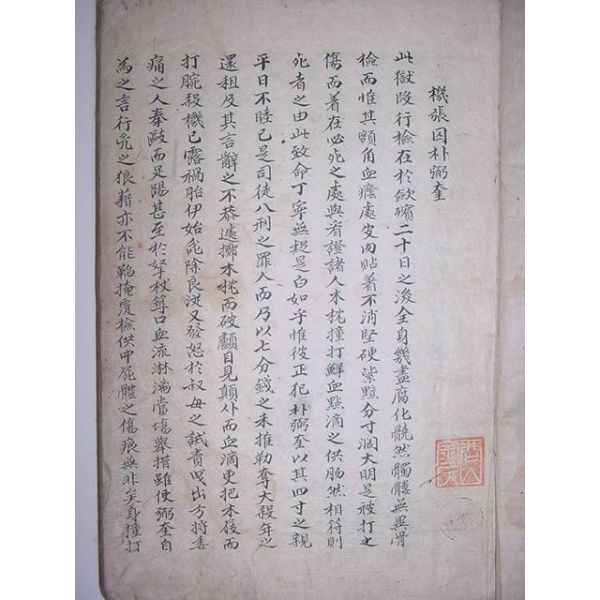 機張囚朴弼奎
此獄段行檢在於歛殯二十日之後全身幾盡腐化髐然髑髏無異骨
檢而惟其額角血癊處皮肉貼着不消堅硬紫黯分寸濶大明是被打之
傷而着在必死之處與看證諸人木枕撞打鮮血點滴之供脗然相符則
死者之由此致命丁寧無疑是白如乎惟彼正犯朴弼奎以其四寸之親
平日不睦已是司徒八刑之罪人而乃以七分錢之未推勒奪大段年之
還租及其言辭之不恭遽擲木枕而破顱目見顛仆而血滴更把木屐而
打腕殺機已露禍胎伊始除良又發怒於叔母之試責曳出方將委
痛之人拳敺而足踢甚至於拏杖口血流淋滿當塲擧措雖使弼奎自
為之言行兇之狼藉亦不能掩覆檢供中屍體之傷痕無非矣身撞打